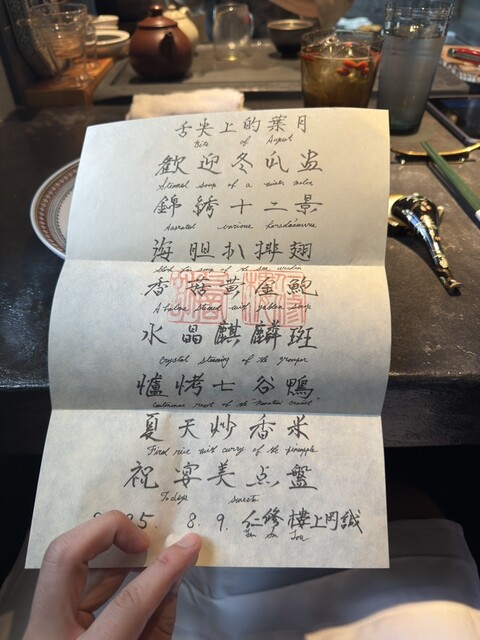 舌尖上的葉月
Bite of August
歓迎冬瓜盅
Steamed soup of a winter melon
錦綉十二景
Assorted various horsdoeuvre
海胆扒排翅
Shark fin soup of the sea urchin
香菇黄金鮑
Abalone stewed with golden
水晶麒麟斑
Crystal steaming of the grouper
爐烤七谷鴨
roast of the "mountain
夏天炒香米
Fried rice with curry of the pineapple
祝宴美点盤
Todays sweets
8. 9. 仁修樓上岡誠